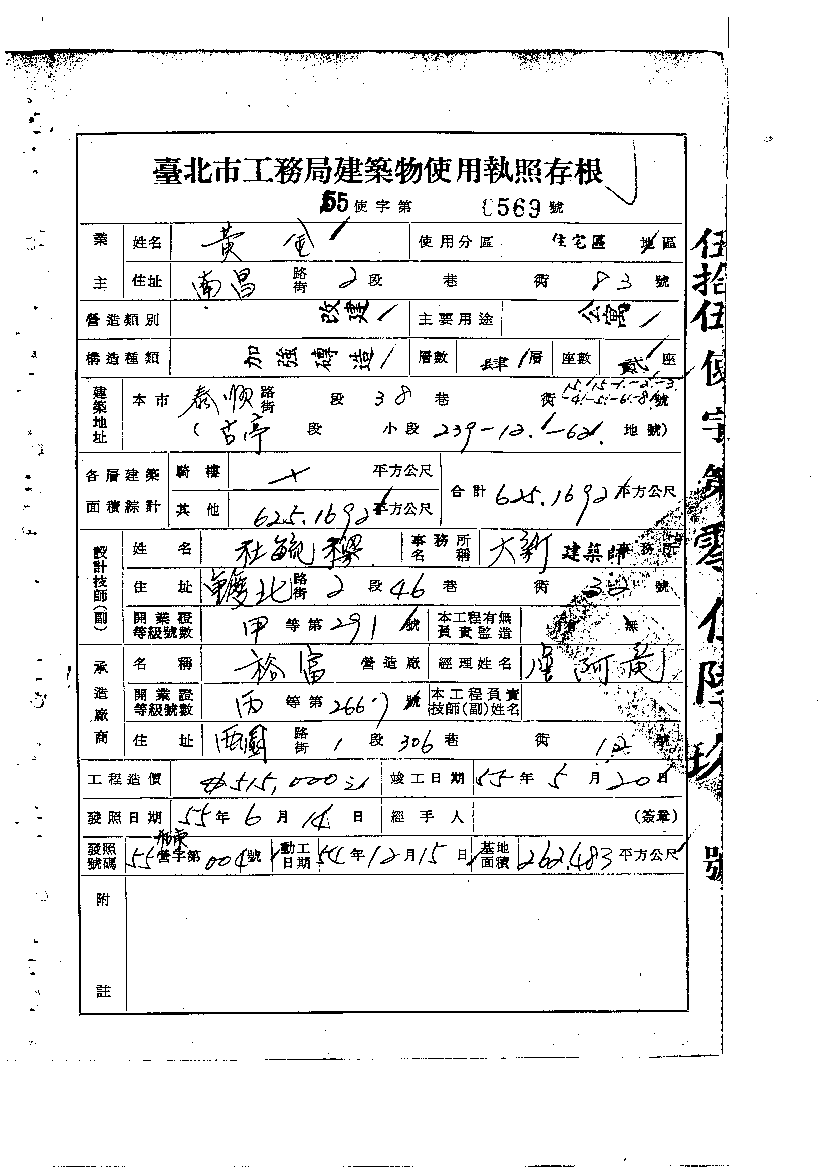 臺北市工務局建築物使用執照存根
55使字第 0569 號
業主 姓名 黃金 使用分區 住宅區 地區
住址 南昌 路街 2 段 巷 街 83 號
營造類別 改建 主要用途 公寓
構造種類 加強磚造 層數 肆 層 座數 貳 座
建築地址 本市 泰順 路街 段 38 巷 街 號
(古亭 段 小段 239-12.-62. 地號)
各層建築面積綜計 騎樓 平方公尺 合計 625.1692 平方公尺
其他 625.1692 平方公尺
設計技師(副) 姓名 杜毓 事務所名稱 大新 建築師事務所
住址 北 路街 2 段 46 巷 街 號
開業證等級號數 甲 等第 291 號 本工程有無負責監造 無
承造廠商 名稱 裕富 營造廠 經理姓名 阿
開業證等級號數 丙 等第 266 號 本工程負責技師(副)姓名
住址 西園 路街 1 段 306 巷 街 12 號
工程造價 515,000 竣工日期 55 年 5 月 20 日
發照日期 55 年 6 月 14 日 經手人 (簽章)
發照號碼 55 營字第 004 號 動工日期 54 年 12 月 15 日 基地面積 262.483 平方公尺
附註
伍拾伍使字第零伍陸玖號